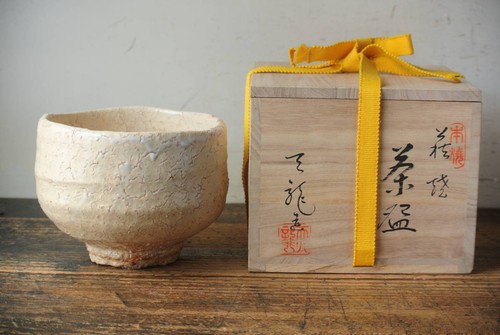 萩焼
茶碗
天龍造